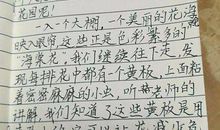 花园呢！
一入个大棚，一个美丽的花海
映入眼帘，这些正是色彩繁多的
"海棠花"，我们继续往下走，发
现每排花中都有一个黄板，上面粘
着密密麻麻的小虫，听 老师的
讲解，我们知道了这些黄板是用